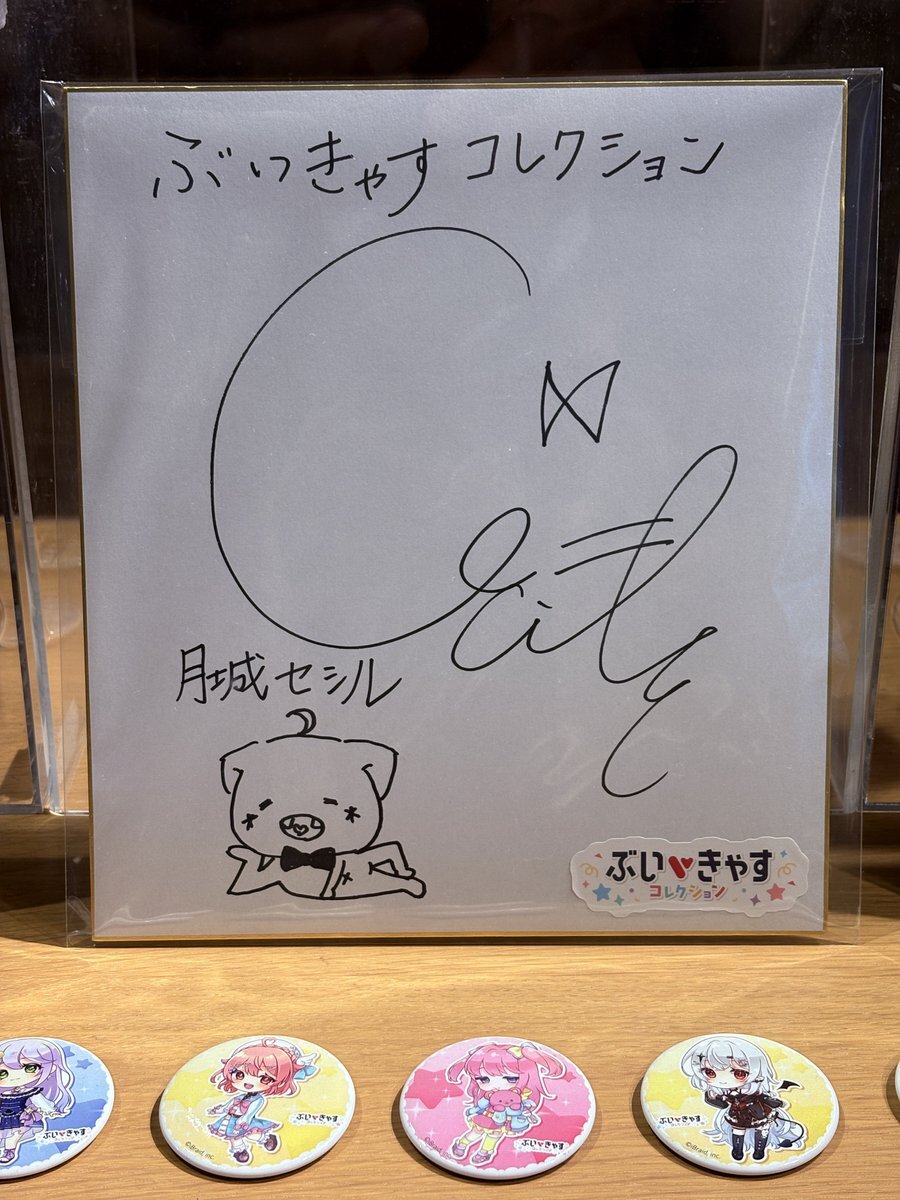 ぶいきゃすコレクション
Cecile
月城セシル
ぶい♥きゃす
コレクション
ぶい♥きゃす
ぶい♥きゃす
©Braid, inc.
ぶい♥きゃす
©Braid, inc.
ぶい♥きゃす
©Braid, inc.